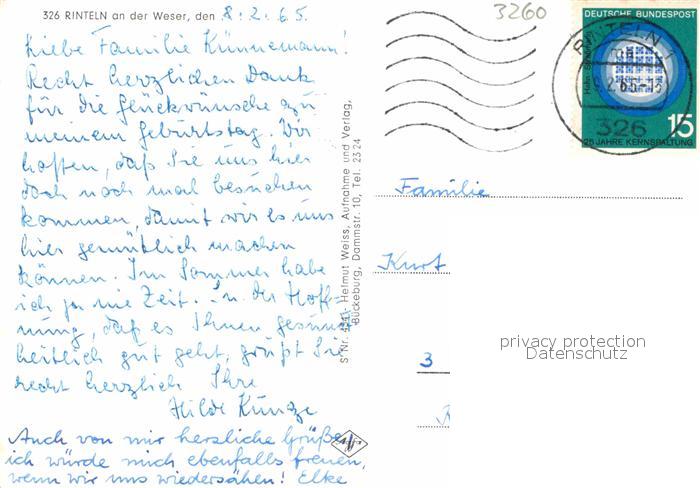 326 RINTELN an der Weser, den 8.2.65.
Liebe Familie Künnemann!
Recht herzlichen Dank
für die Glückwünsche zu
meinem Geburtstag. Wir
hoffen, daß Sie uns hier
doch noch mal besuchen
kommen, damit wir es uns
hier gemütlich machen
können. Im Sommer habe
ich ja nie Zeit. In der Hoff-
nung, daß es Ihnen gesund-
heitlich gut geht, grüßt Sie
recht herzlich Ihre
Hilde Kunze
Auch von mir herzliche Grüße,
ich würde mich ebenfalls freuen,
wenn wir uns wiedersähen! Elke
Helmut Weiss, Aufnahme und Verlag,
Bückeburg, Dammstr. 10, Tel. 23 24
3260
DEUTSCHE BUNDESPOST
15
25 JAHRE KERNSPALTUNG
RINTELN
.2.65-15
326
Familie
Kurt
3
privacy protection
Datenschutz